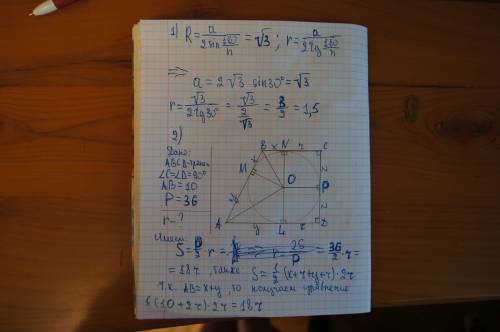 1) R = a / (2 sin 180/n) = √3 ; r = a / (2 tg 180/n)
⇒ a = 2√3 sin 30° = √3
r = √3 / (2 tg 30°) = √3 / (2/√3) = 3/2 = 1,5
2)
Дано:
ABCD-трапец
∠C=∠D=90°
AB = 10
P = 36
r - ?
B x N r C
x
M
O
P
y
r
r
A y L r D
S = P/2 r = 36/2 · r =
= 18r , также S = 1/2 (x+r+y+r) · 2r
т.к. AB = x+y, то получаем уравнение
(10 + 2r) · 2r = 18r